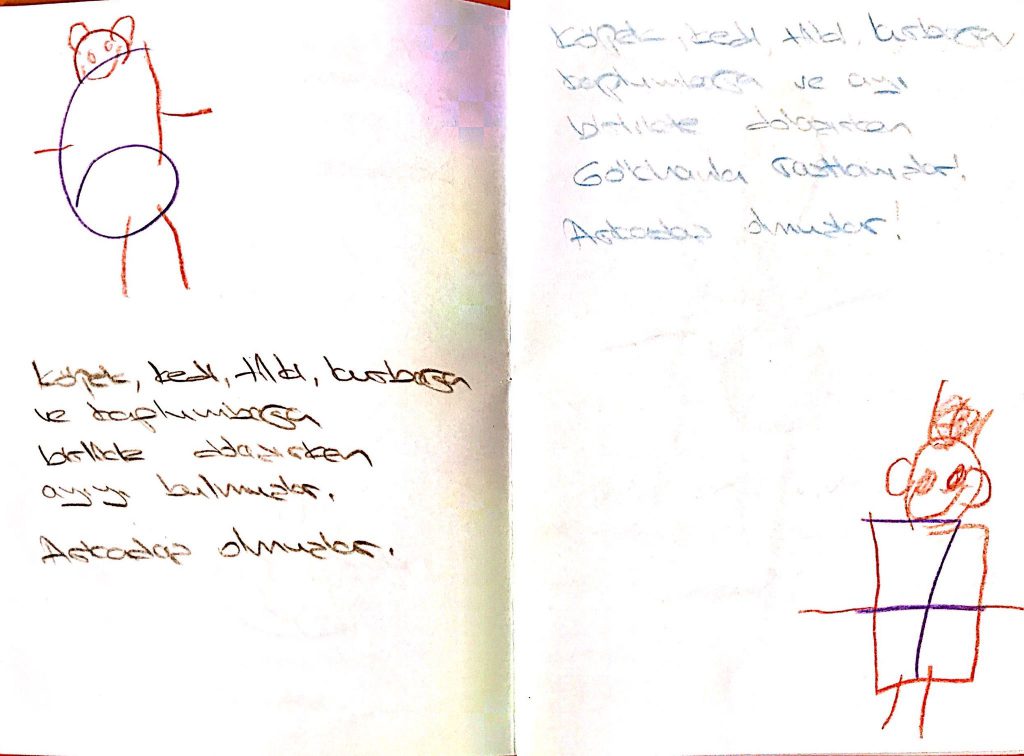 köpek, kedi, tilki, kurbağa
ve kaplumbağa
birlikte dolaşırken
ayıyı bulmuşlar.
Arkadaş olmuşlar.
köpek, kedi, tilki, kurbağa
kaplumbağa ve ayı
birlikte dolaşırken
Gökhanla rastlamışlar!
Arkadaş olmuşlar!